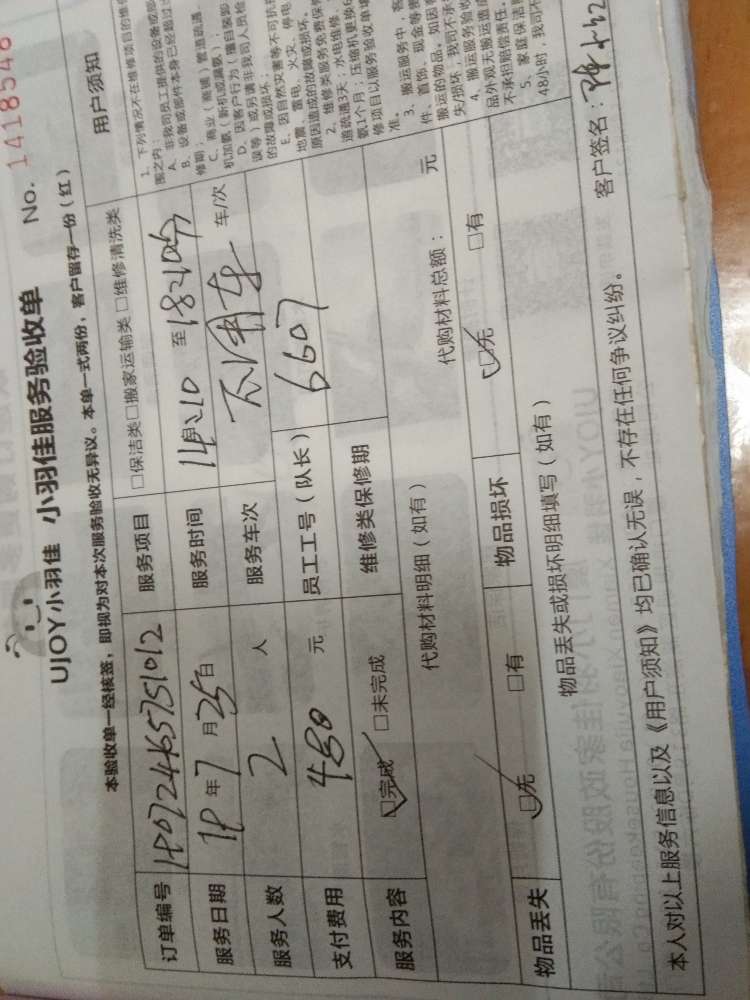 UJOY小羽佳 小羽佳服务验收单 No. 1418548
本验收单一经核签，即视为对本次服务验收无异议。本单一式两份，客户留存一份（红）
订单编号 180724465751012 服务项目 □保洁类□搬家运输类□维修清洗类
服务日期 18年7月25日 服务时间 14:10 至 18:10
服务人数 2 人 服务车次 不用车 车/次
支付费用 480 元 员工工号（队长） 6607
服务内容 ☑完成 □未完成 维修类保修期
代购材料明细（如有） 代购材料总额： 元
物品丢失 ☑无 □有 物品损坏 ☑无 □有
物品丢失或损坏明细填写（如有）
本人对以上服务信息以及《用户须知》均已确认无误，不存在任何争议纠纷。 客户签名：
用户须知
1、下列情况不在维修项目的维
围之内：
A、非我司员工提供的设备或部
B、设备或部件本身已经超过
修期；
C、商业（商铺）管道疏通、
机加氨（新机或漏氨）；
D、因客户行为（擅自装卸
误等）或另请非我司人员检
的故障或损坏；
E、因自然灾害等不可抗
地震、雷电、火灾、停电
原因造成的故障或损坏。
2、维修类服务免费保
道疏通3天；水电维修、
氨1个月；压缩机更换6
修项目以服务验收单填
准。
3、搬运服务中，客
件、首饰、现金等贵
搬运的物品。如因
失/损坏，我司不承
4、搬运服务验收
品外观无搬运造成
不承担赔偿责任。
5、家庭保洁
48小时，我司不